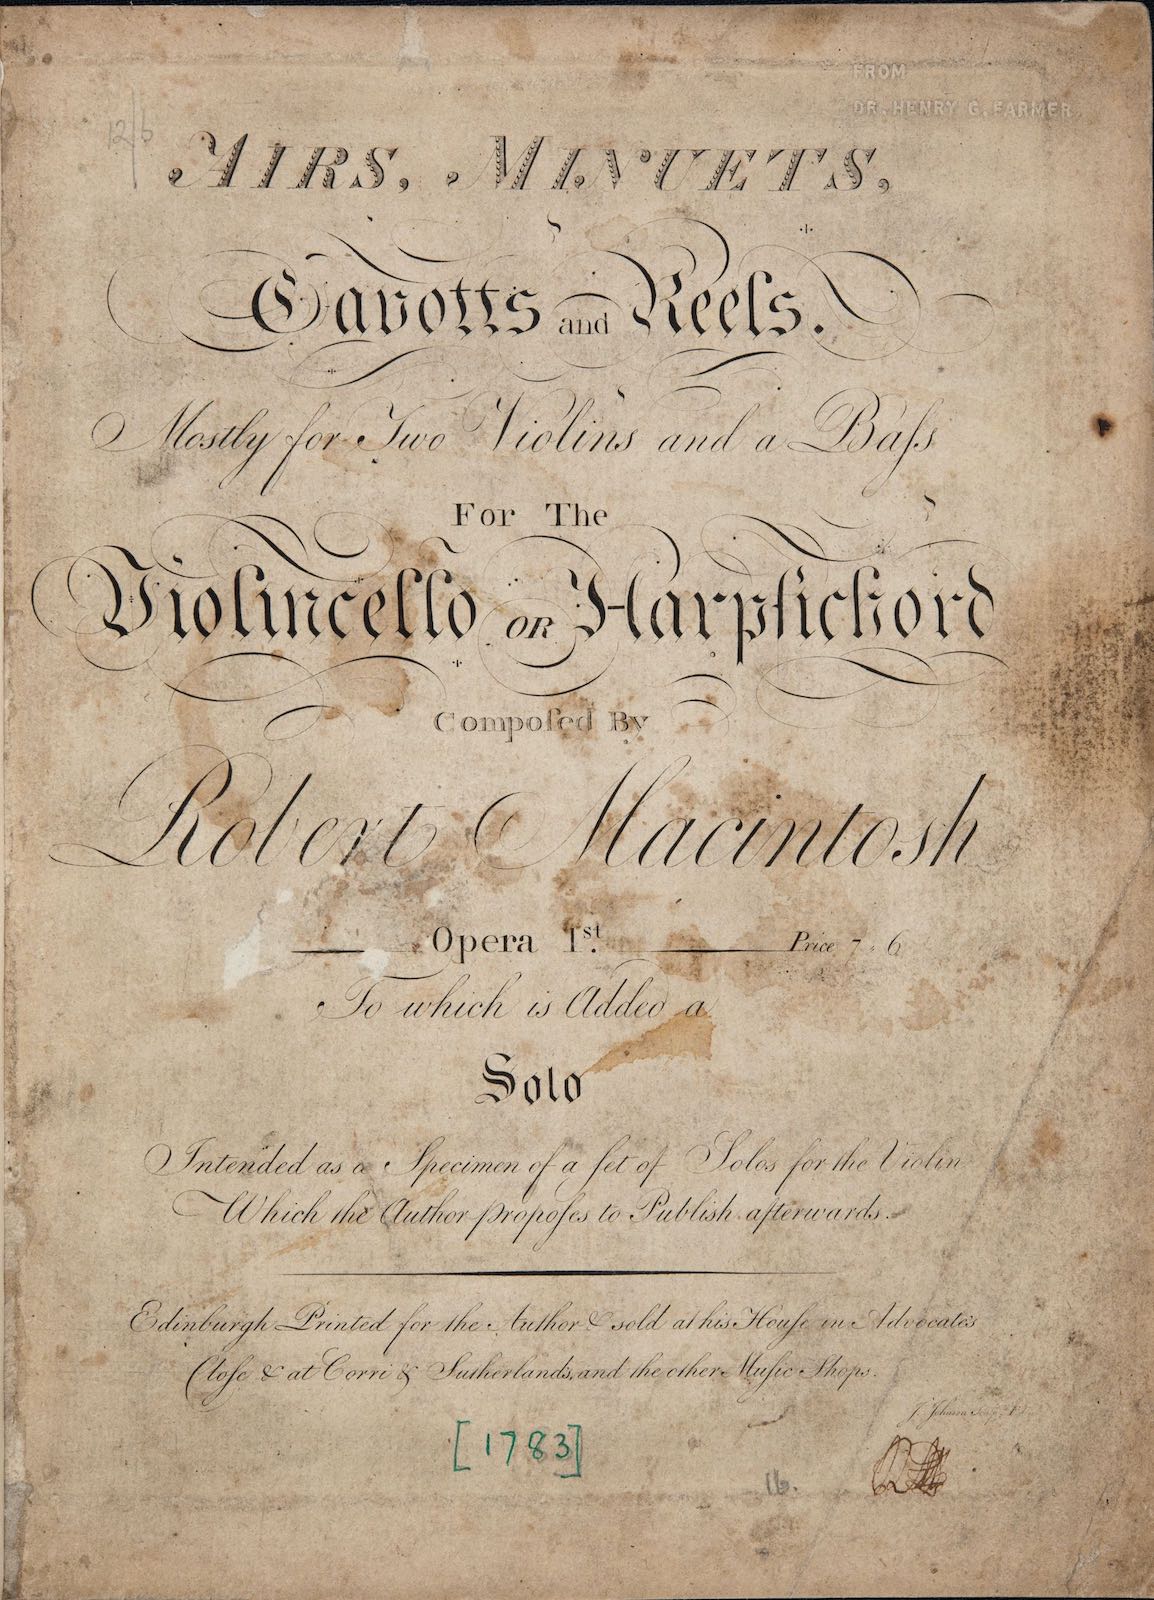 FROM
DR. HENRY G. FARMER
12/6
AIRS, MINUETS,
Gavotts and Reels.
Mostly for Two Violins and a Baſs
For The
Violincello OR Harpſichord
Compoſed By
Robert Macintosh
Opera 1st. Price 7 " 6
To which is Added a
Solo
Intended as a Specimen of a ſet of Solos for the Violin
Which the Author propoſes to Publish afterwards.
Edinburgh Printed for the Author & sold at his Houſe in Advocates
Cloſe & at Corri & Sutherlands, and the other Muſic Shops.
J. Johnson
[1783]
16.